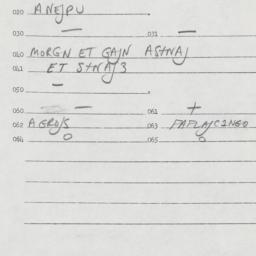 020 ANEJPU
030 — 031 —
040 MORGN ET GAJN ASTNAJ
041 ET STNAJ3
050 —
060 — 061 +
062 AGROJS 063 FAFLAJCINGO
064 0 065 0